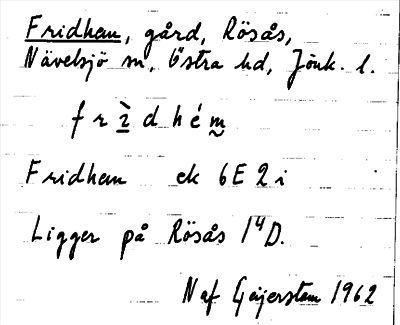 Fridhem, gård, Rösås,
Nävelsjö sn, Östra hd, Jönk. l.
f r ì d h é m
Fridhem ek 6E2i
Ligger på Rösås 1⁴D.
N af Geijerstam 1962